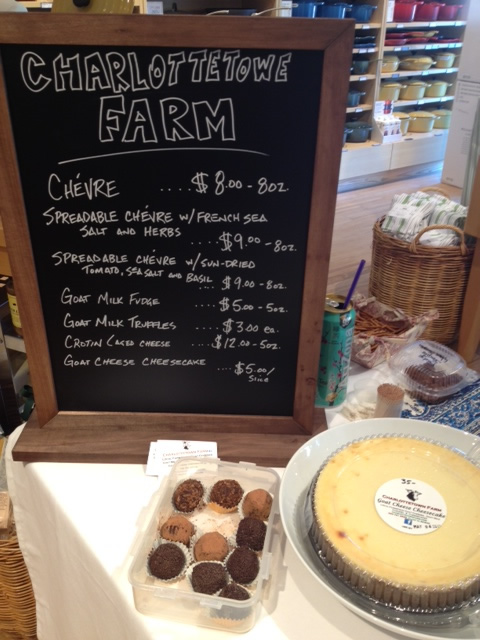 CHARLOTTETOWE
FARM
CHÉVRE .... $8.00 - 8oz.
SPREADABLE CHÉVRE W/ FRENCH SEA
SALT AND HERBS
.... $9.00 - 8oz.
SPREADABLE CHÉVRE W/ SUN-DRIED
TOMATO, SEA SALT AND BASIL
.... $9.00 - 8oz.
GOAT MILK FUDGE .... $5.00 - 5oz.
GOAT MILK TRUFFLES .... $3.00 ea.
CROTIN (AGED CHEESE .... $12.00 - 5oz.
GOAT CHEESE CHEESECAKE .... $5.00/
Slice
35-
CHARLOTTETOWN FARM
Goat Cheese Cheesecake